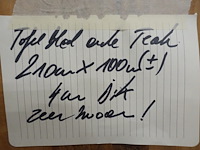 Tafel blad oude Teak
210cm X 100cm (±)
4cm dik
zeer mooi !